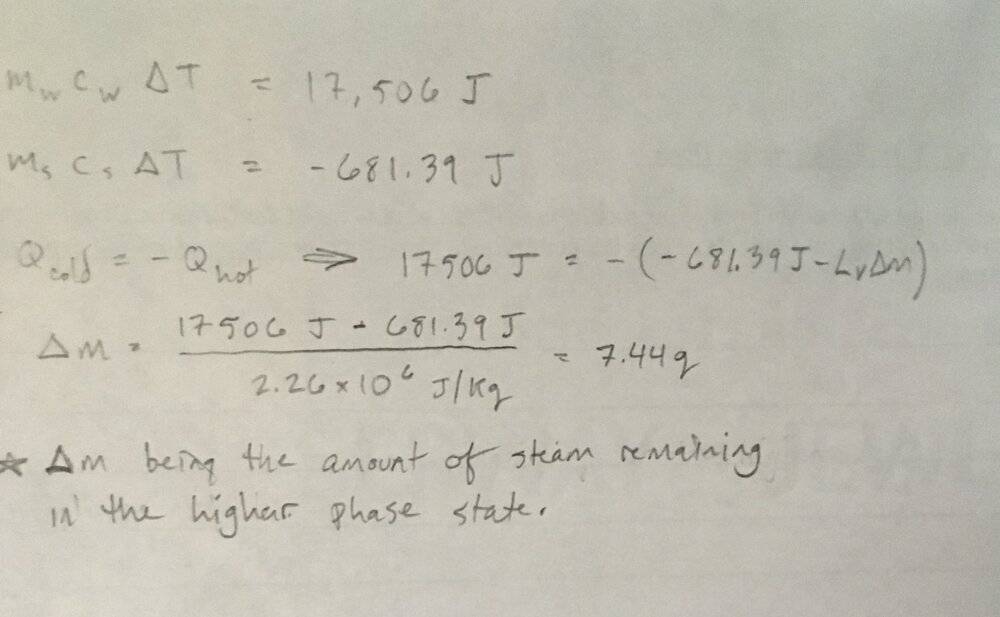 m_w c_w ΔT = 17,506 J
m_s c_s ΔT = -681.39 J
Q_cold = - Q_hot ⇒ 17506 J = -(-681.39 J - L_v Δm)
Δm = (17506 J - 681.39 J) / (2.26 × 10^6 J/Kg) = 7.44 g
☆ Δm being the amount of steam remaining
in the higher phase state.